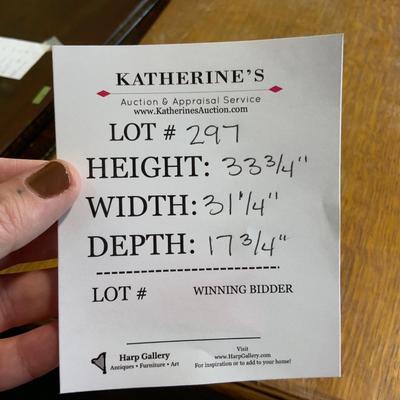 KATHERINE'S
Auction & Appraisal Service
www.KatherinesAuction.com
LOT # 297
HEIGHT: 33 3/4"
WIDTH: 31 1/4"
DEPTH: 17 3/4"
LOT # WINNING BIDDER
Harp Gallery
Antiques • Furniture • Art
Visit
www.HarpGallery.com
For inspiration or to add to your home!